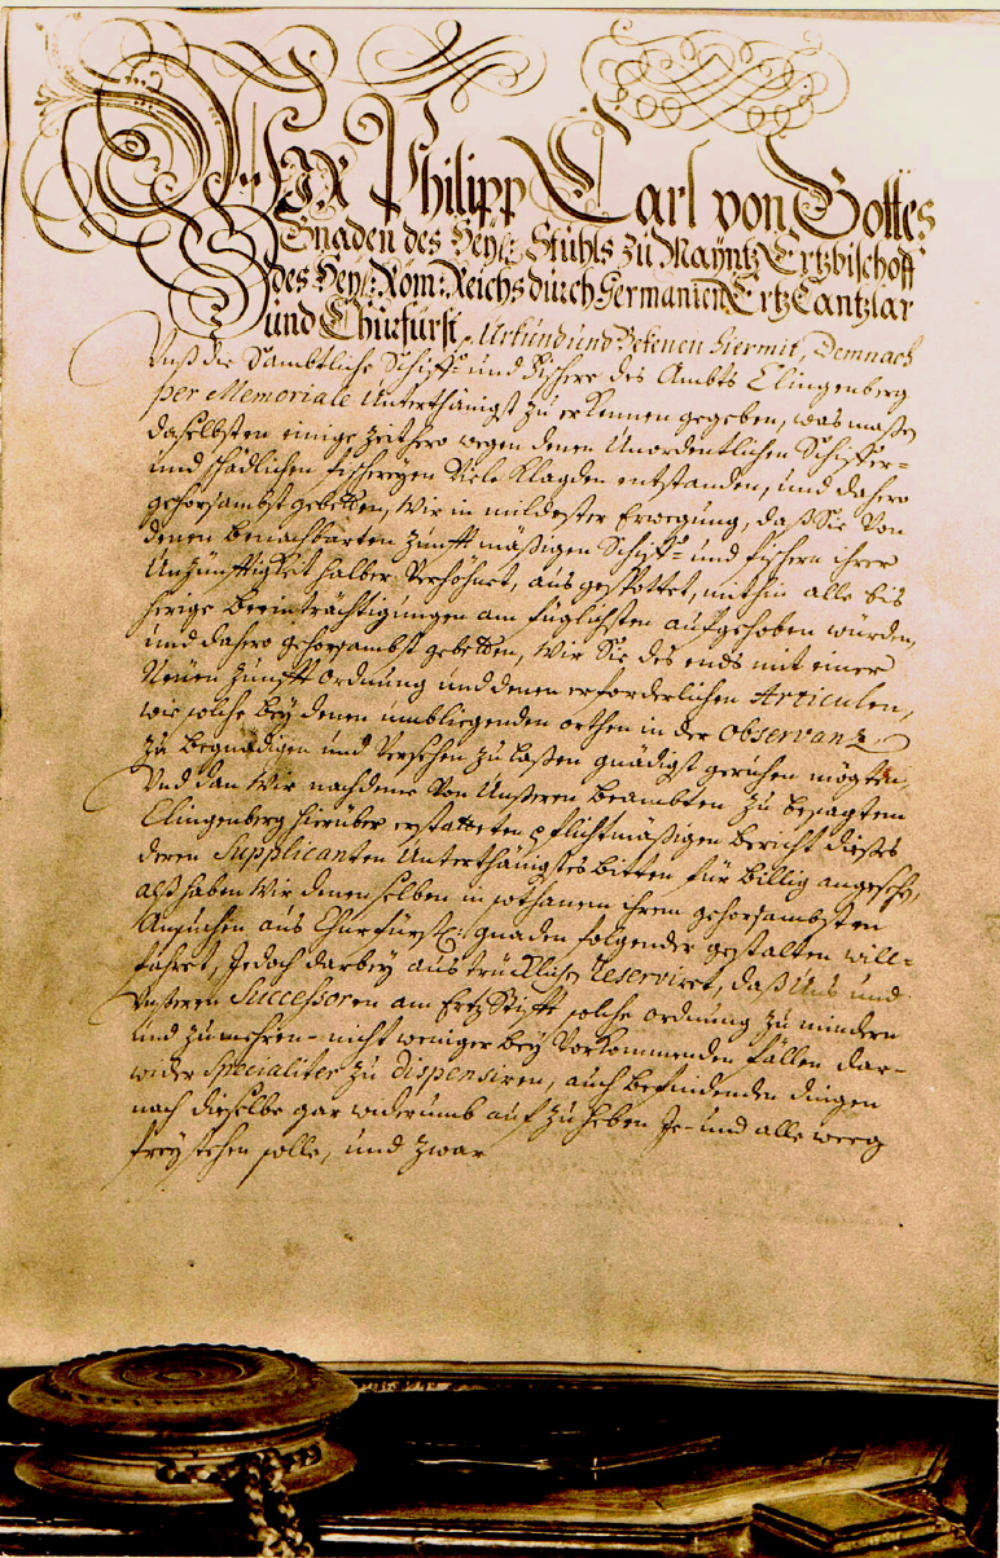 Wir Philipp Carl von Gottes
Gnaden des Heyl: Stuhls zu Mayntz Ertzbischoff
des Heyl: Röm: Reichs durch Germanien Ertz Cantzlar
und Churfürst, Urkund und Bekenen hiermit, Demnach
Unß die Sämbtliche Schiff= und Fischere des Ambts Clingenberg
per Memoriale Unterthänigst zu erkennen gegeben, was maßen
daselbsten einige zeithero wegen denen Unordentlichen Schiffer=
und schädlichen fischereyen Viele Klagden entstanden, und dahero
gehorsambst gebetten, Wir in mildester Erwegung, daß Sie Von
denen benachbarten Zunfft mäßigen Schiff= und fischern ihrer
Unzünfftigkeit halber Verhöhnet, ausgespottet, mithin alle bis
herige beeinträchtigungen am füglichsten aufgehoben würden,
und dahero gehorsambst gebetten, Wir Sie des ends mit einer
Neüen Zunfft ordnung und denen erforderlichen Articulen,
wie solche bey denen umbliegenden orthen in der observanz
zu begnädigen und Versehen zu laßen gnädigst geruhen mögten,
Und dan Wir nach deme Von Unßeren beambten zu besagtem
Clingenberg hierüber erstatteten pflichtmäßigen bericht dießes
deren Supplicanten Unterthänigstes bitten für billig angesehen,
alß haben Wir denenselben in sothanem ihrem gehorsambsten
Ansuchen aus Churfürstl: gnaden folgender gestalten will=
fahret, Jedoch darbey austrücklich Reserviret, daß Uns und
Unßeren Successoren am Ertz Stifft solche ordnung zu mindern
und zu mehren- nicht weniger bey Vorkommenden fällen dar-
wider Specialiter zu dispensiren, auch befindenden dingen
nach dieselbe gar widerumb auf zu heben Je- und alle weeg
freystehen solle, und zwar